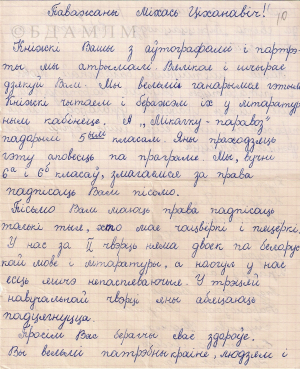 Паважаны Міхась Ціханавіч!!
Кніжкі Вашы з аўтографамі і партрэ-
ты мы атрымалі. Вялікае і шчырае
дзякуй Вам. Мы вельмі ганарымся гэтым.
Кніжкі чытаем і беражэм іх у літаратур-
ным кабінеце. А „Мікалку-паравоз"
падарылі 5ым класам. Яны праходзяць
гэту аповесць па праграме. Мы, вучні
6а і 6б класаў, змагаемся за права
падпісаць Вам пісьмо.
Пісьмо Вам маюць права падпісаць
толькі тыя, хто мае чацвёркі і пяцёркі.
У нас за II чвэрць няма двоек па беларус
кай мове і літаратуры, а наогул у нас
ёсць яшчэ непаспяваючыя. У трэцяй
навучальнай чвэрці яны абяцаюць
падцягнуцца.
Просім Вас берагчы сваё здароўе.
Вы вельмі патрэбны краіне, людзям і